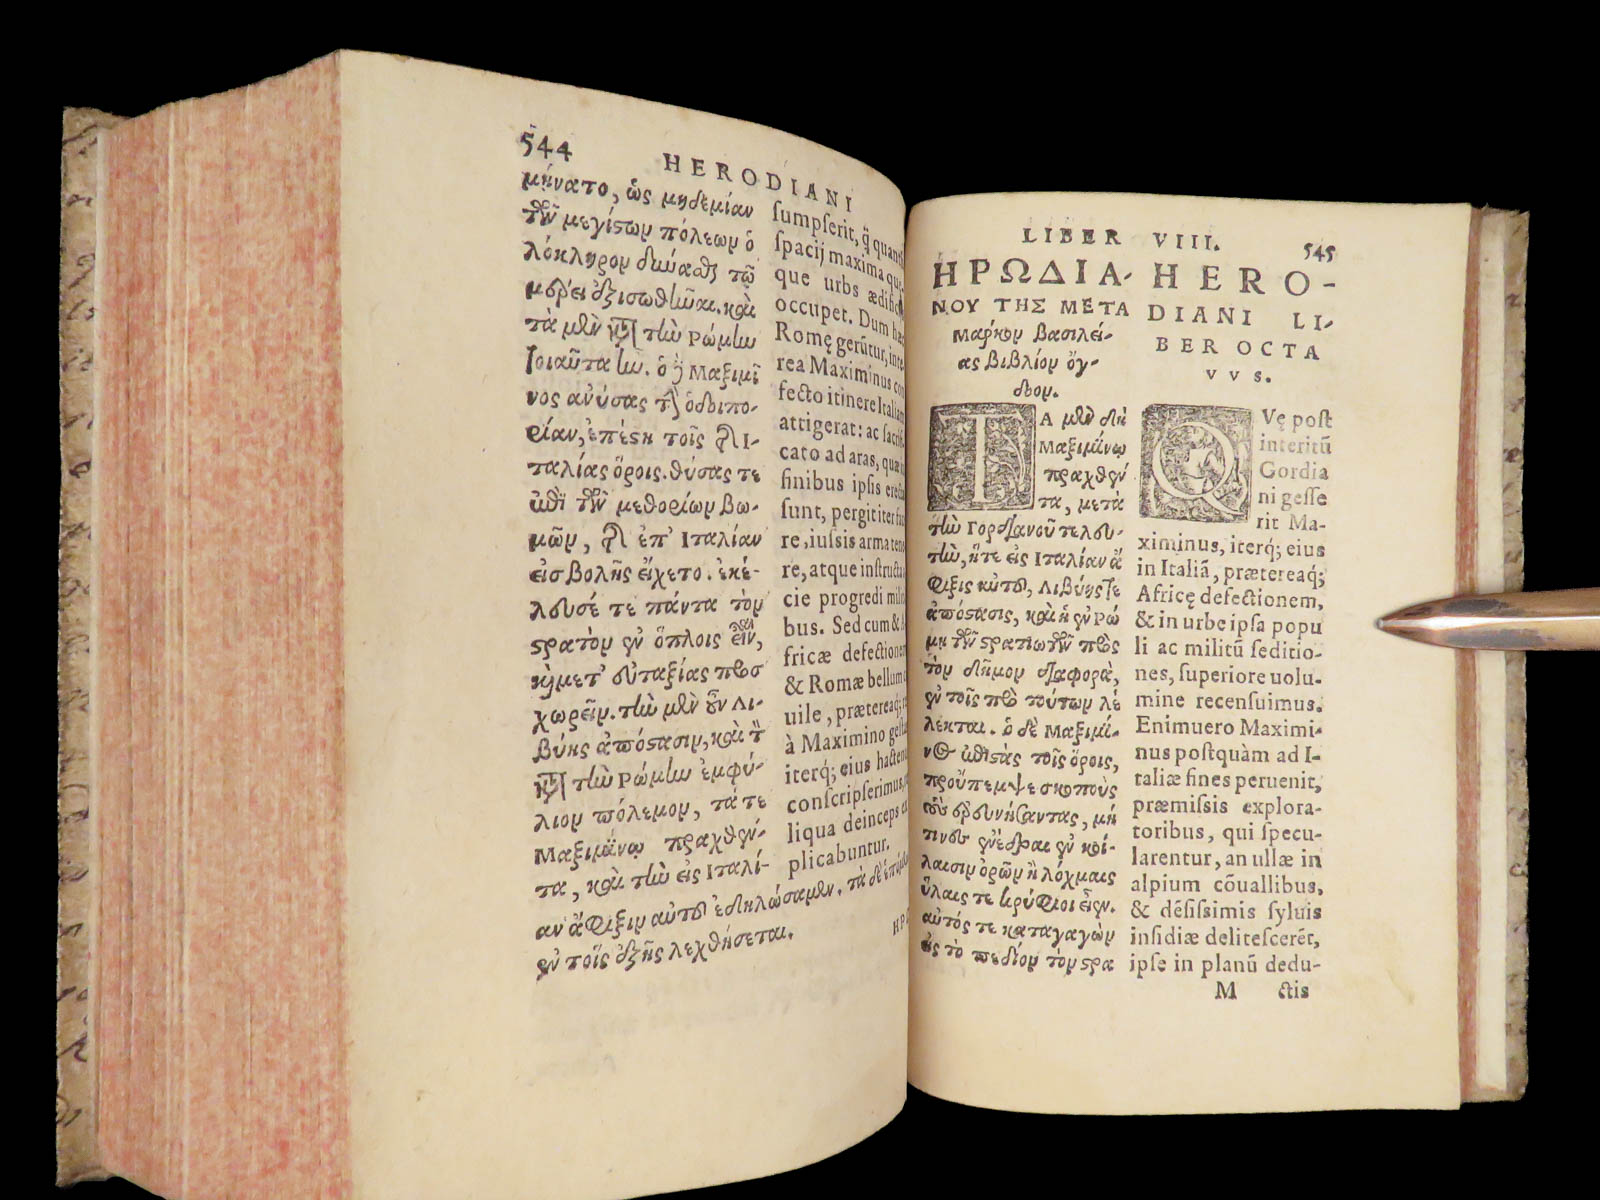 544
HERODIANI
μήνατο, ὡς μηδεμίαν
τῶν μεγίστων πόλεων ὁ
λόκληρον δύνασθαι τῷ
μέρει ἐξισωθῆναι. καὶ
τὰ μὲν κατὰ τὴν Ρώμην
τοιαῦτα ἦν. ὁ δὲ Μαξιμῖ
νος ἀνύσας τὴν ὁδοιπο-
ρίαν, ἐπέστη τοῖς τῆς Ι-
ταλίας ὅροις. θύσας τε
ἐπὶ τῶν μεθορίων βω-
μῶν, τῆς ἐπ' Ιταλίαν
εἰσβολῆς εἴχετο. ἐκέ-
λευσέ τε πάντα τὸν
στρατὸν ἐν ὅπλοις εἶναι,
καὶ μετ' εὐταξίας προσ
χωρεῖν. τὴν μὲν οὖν Λι-
βύης ἀπόστασιν, καὶ τὸν
κατὰ τὴν Ρώμην ἐμφύ-
λιον πόλεμον, τά τε
Μαξιμίνῳ πραχθέν-
τα, καὶ τὴν εἰς Ιταλί-
αν ἄφιξιν αὐτοῦ ἐδηλώσαμεν. τὰ δὲ
ἐν τοῖς ἑξῆς λεχθήσεται.
sumpserit, q̃
spacij maxima
que urbs
occupet. Dum
Romę gerũtur,
rea Maximinus
fecto itinere Italiam
attigerat: ac
cato ad aras, quæ
finibus ipsis
sunt, pergit iter
re, iussis
re, atque
cie progredi
bus. Sed cum &
fricæ defectionem
& Romæ bellum
uile, prætereaq́;
à Maximino
iterq́; eius
conscripserimus,
liqua deinceps
plicabuntur.
LIBER VIII.
545
ΗΡΩΔΙΑ-
ΝΟΥ ΤΗΣ ΜΕΤΑ
Μαρκον βασιλεί-
ας βιβλίον ὄγ-
δοον.
ΤΑ μὲν δὴ
Μαξιμίνῳ
πραχθέν
τα, μετὰ
τὴν Γορδιανοῦ τελευ-
τὴν, ἥτε εἰς Ιταλίαν ἄ
φιξις αὐτοῦ, Λιβύης τε
ἀπόστασις, καὶ ἡ ἐν Ρώ
μῃ τῶν στρατιωτῶν πρὸς
τὸν δῆμον διαφορὰ,
ἐν τοῖς πρὸ τούτων λέ
λεκται. ὁ δὲ Μαξιμί-
νος ἐπιστὰς τοῖς ὅροις,
προὔπεμψε σκοποὺς
τοὺς ἐρευνήσαντας, μή
τινες ἐνέδραι ἐν κοι-
λάσιν ὀρῶν ἢ λόχμαις
ὕλαις τε κρύφιοι εἶεν.
αὐτός τε καταγαγὼν
εἰς τὸ πεδίον τὸν στρα
HERO-
DIANI LI-
BER OCTA
VVS.
QVę post
interitũ
Gordia
ni gesse
rit Ma-
ximinus, iterq́; eius
in Italiã, prætereaq́;
Africę defectionem,
& in urbe ipsa popu
li ac militũ seditio-
nes, superiore uolu-
mine recensuimus.
Enimuero Maximi-
nus postquàm ad I-
taliæ fines peruenit,
præmissis explora-
toribus, qui specu-
larentur, an ullæ in
alpium cõuallibus,
& dẽsissimis syluis
insidiæ delitescerẽt,
ipse in planũ dedu-
M ctis